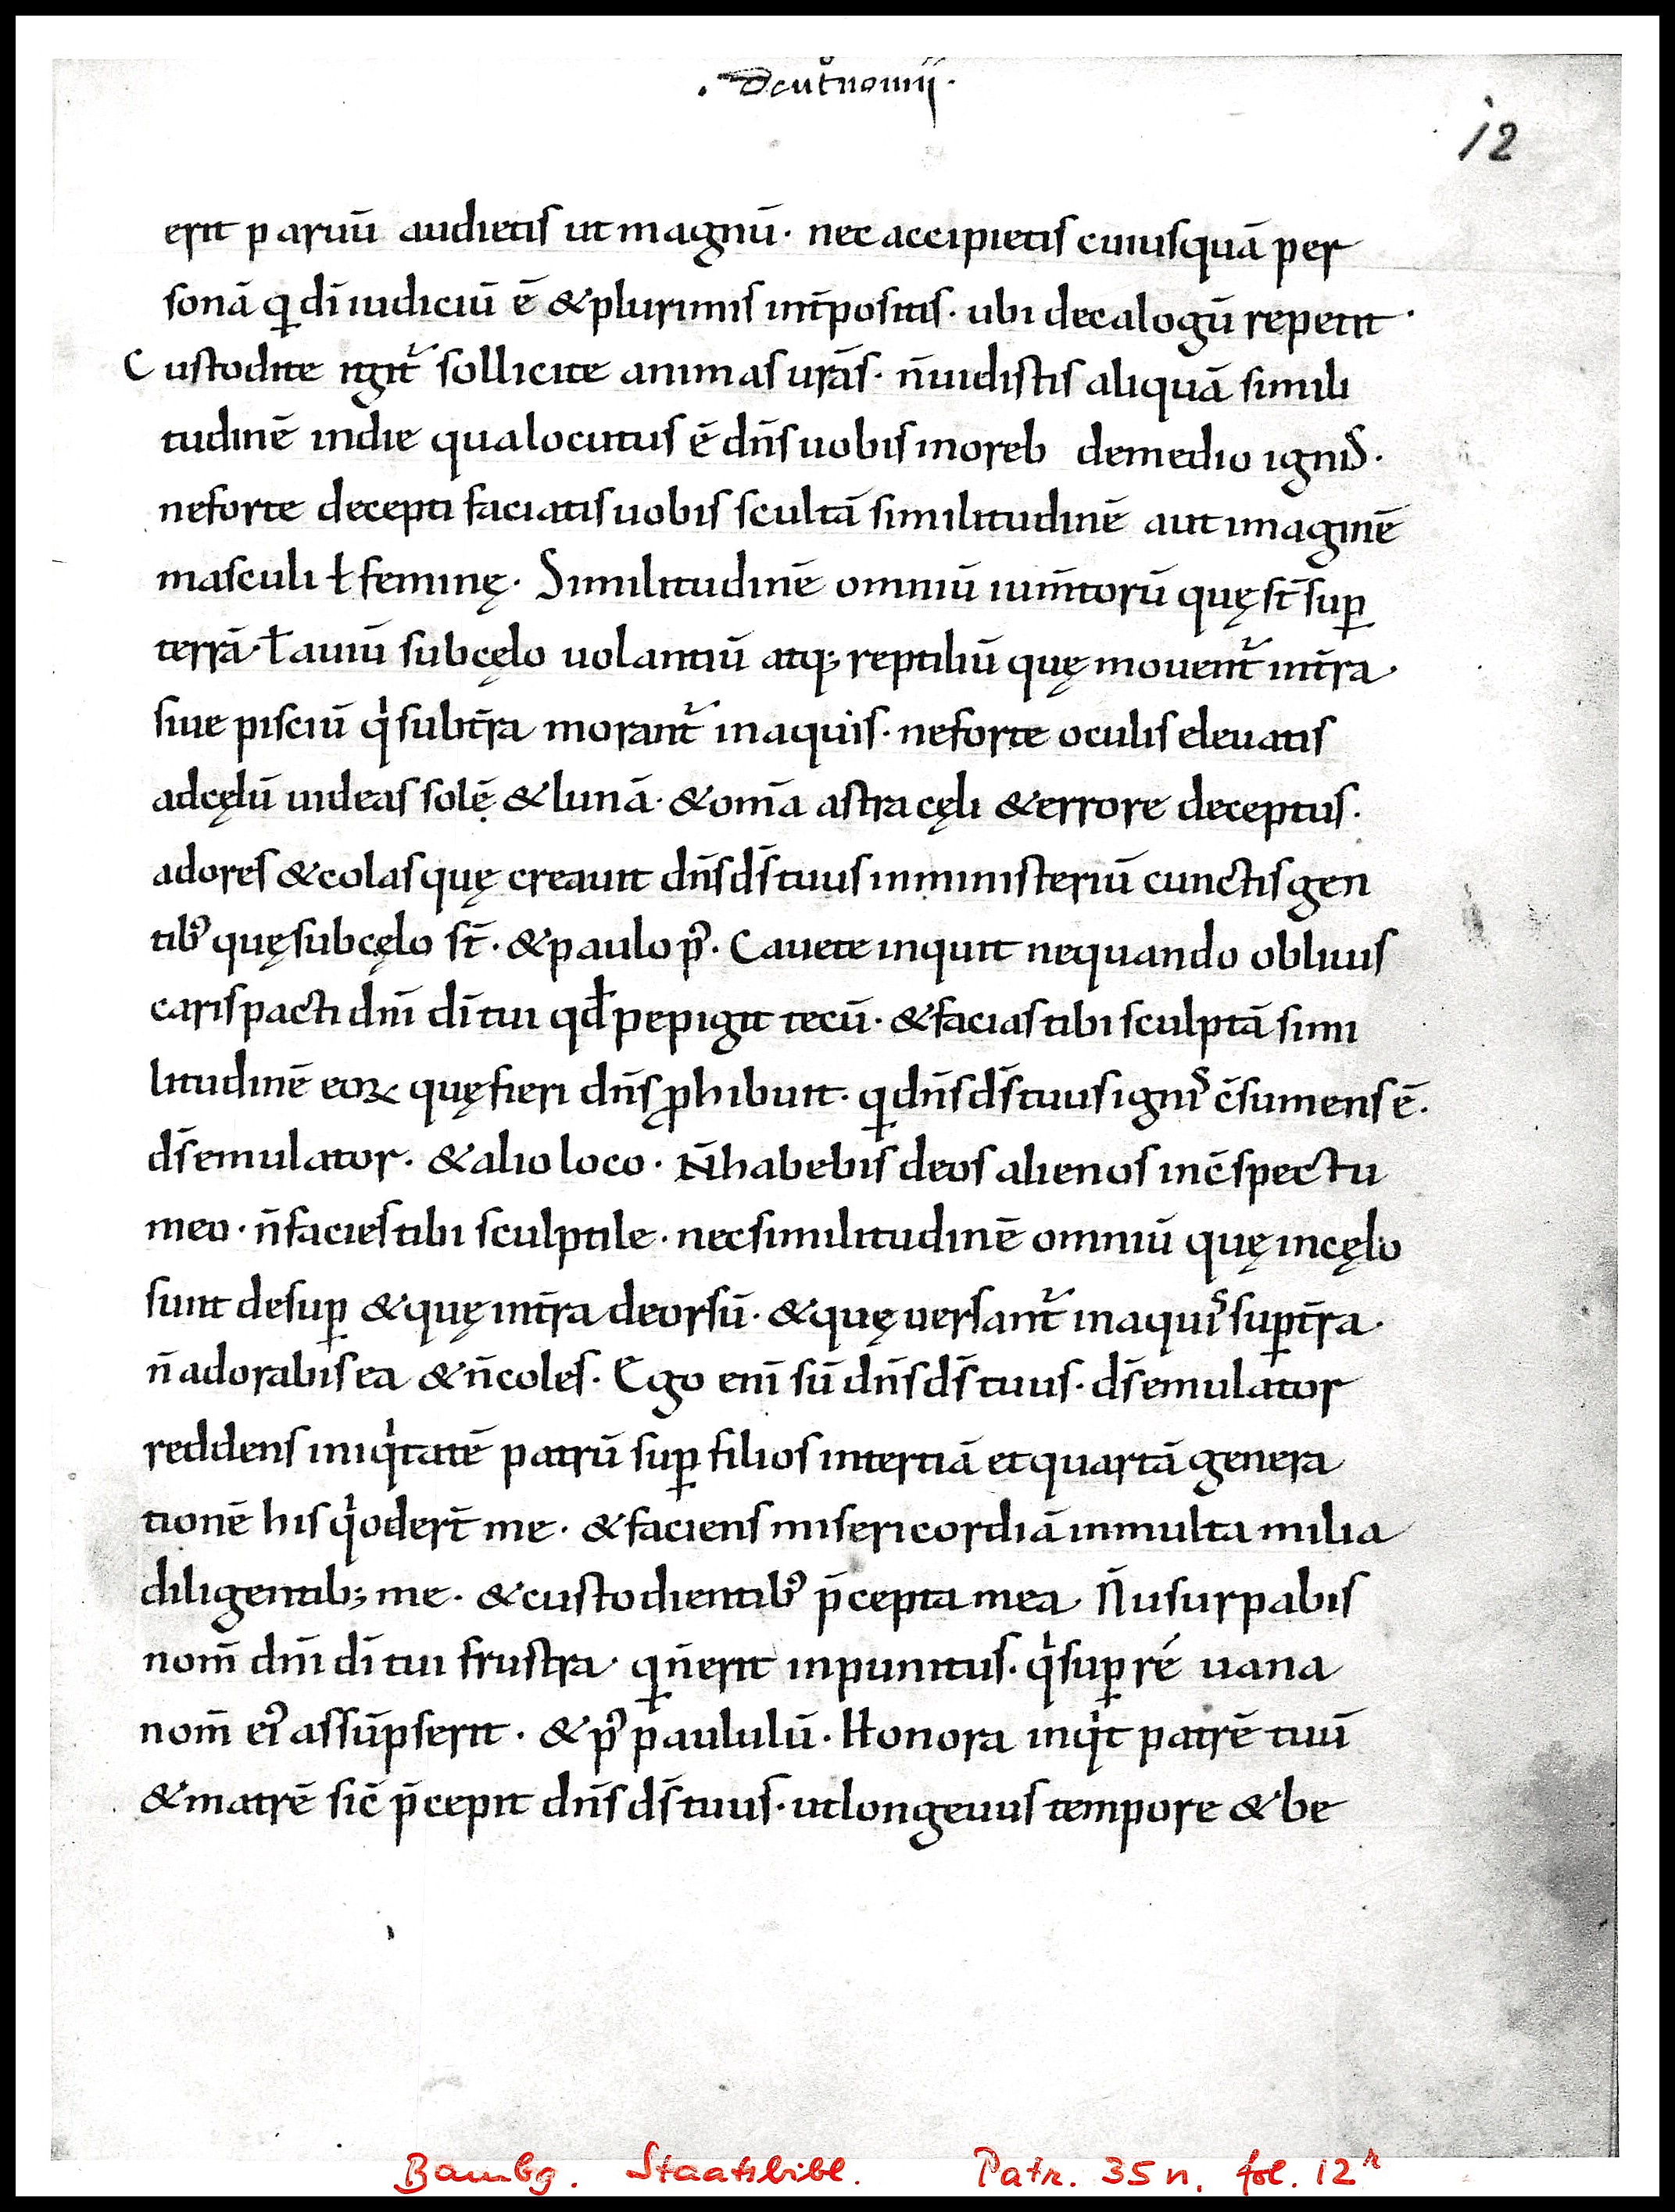 · Deut̄nomij ·
12
erit paruū audietis ut magnū · nec accipietis cuiusquā per
sonā q̨ dī iudiciū ē & plurimis int̄positis · ubi decalogū repetit ·
Custodite igit᷑ sollicite animas urās · n̄ uidistis aliquā simili
tudinē in die qua locutus ē dn̄s uobis in oreb de medio ignis ·
ne forte decepti faciatis uobis scultā similitudinē aut imaginē
masculi ł feminę · Similitudinē omniū ium̄torū quę st̄ suꝑ
terrā · ł auiū sub cęlo uolantiū atq; reptiliū quę mouent᷑ in t̄ra ·
siue pisciū qͥ sub t̄ra morant᷑ in aquis · ne forte oculis eleuatis
ad cęlū uideas solē & lunā · & om̄a astra cęli & errore deceptus ·
adores & colas quę creauit dn̄s ds̄ tuus in ministeriū cunctis gen
tibꝰ quę sub cęlo st̄ · & paulo pꝰ · Cauete inquit nequando obliuis
caris pacti dn̄i dī tui qd̄ pepigit tecū · & facias tibi sculptā simi
litudinē eoꝝ quę fieri dn̄s ꝓhibuit · q̨ dn̄s ds̄ tuus ignis c̄sumens ē ·
ds̄ emulator · & alio loco · N̄ habebis deos alienos in c̄spectu
meo · n̄ facies tibi sculptile · nec similitudinē omniū quę in cęlo
sunt desuꝑ & quę in t̄ra deorsū · & quę uersant᷑ in aquis suꝑ t̄ra ·
n̄ adorabis ea & n̄ coles · Ego enī sū dn̄s ds̄ tuus · ds̄ emulator
reddens iniqͥtatē patrū suꝑ filios in tertiā et quartā genera
tionē his qͥ odert̄ me · & faciens misericordiā in multa milia
diligentib; me · & custodientibꝰ p̄cepta mea · N̄ usurpabis
nom̄ dn̄i dī tui frustra · q̨ n̄ erit inpunitus · qͥ suꝑ ré uana
nom̄ eiꝰ assūpserit · & pꝰ paululū · Honora inqͥt patrē tuū
& matrē sic̄ p̄cepit dn̄s ds̄ tuus · ut longeuus tempore & be
Bambg. Staatsbibl. Patr. 35 n, fol. 12ʳ